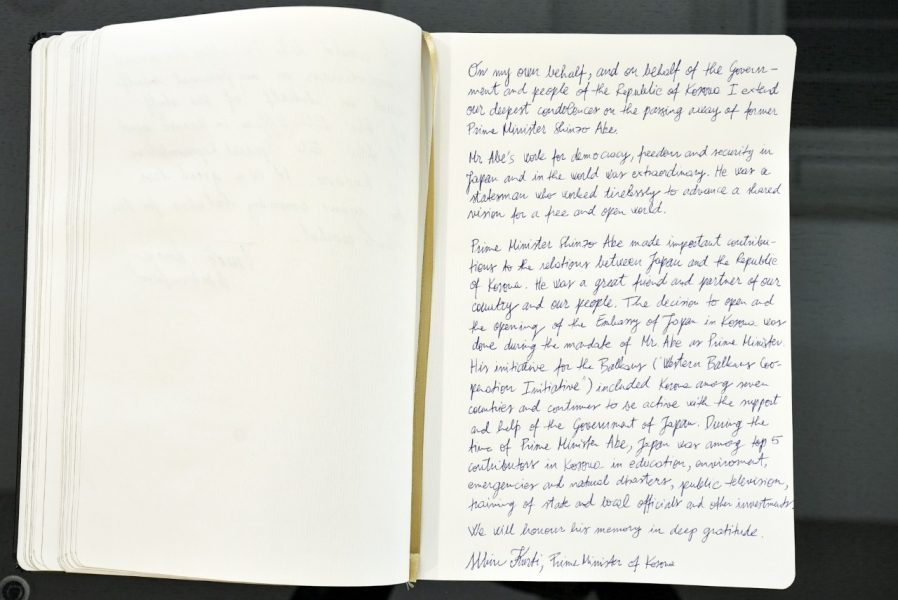 On my own behalf, and on behalf of the Govern-
ment and people of the Republic of Kosova I extend
our deepest condolences on the passing away of former
Prime Minister Shinzo Abe.
Mr Abe's work for democracy, freedom and security in
Japan and in the world was extraordinary. He was a
statesman who worked tirelessly to advance a shared
vision for a free and open world.
Prime Minister Shinzo Abe made important contribu-
tions to the relations between Japan and the Republic
of Kosova. He was a great friend and partner of our
country and our people. The decision to open and
the opening of the Embassy of Japan in Kosova was
done during the mandate of Mr. Abe as Prime Minister.
His initiative for the Balkans ("Western Balkans Coo-
peration Initiative") included Kosova among seven
countries and continues to be active with the support
and help of the Government of Japan. During the
time of Prime Minister Abe, Japan was among top 5
contributors in Kosova in education, enviroment,
emergencies and natural disasters, public television,
training of state and local officials and other investments.
We will honour his memory in deep gratitude.
Albin Kurti, Prime Minister of Kosova